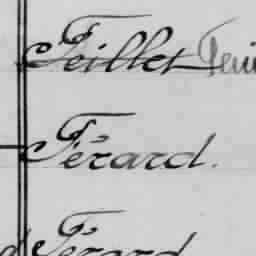 Feillet
Férard.
Férard